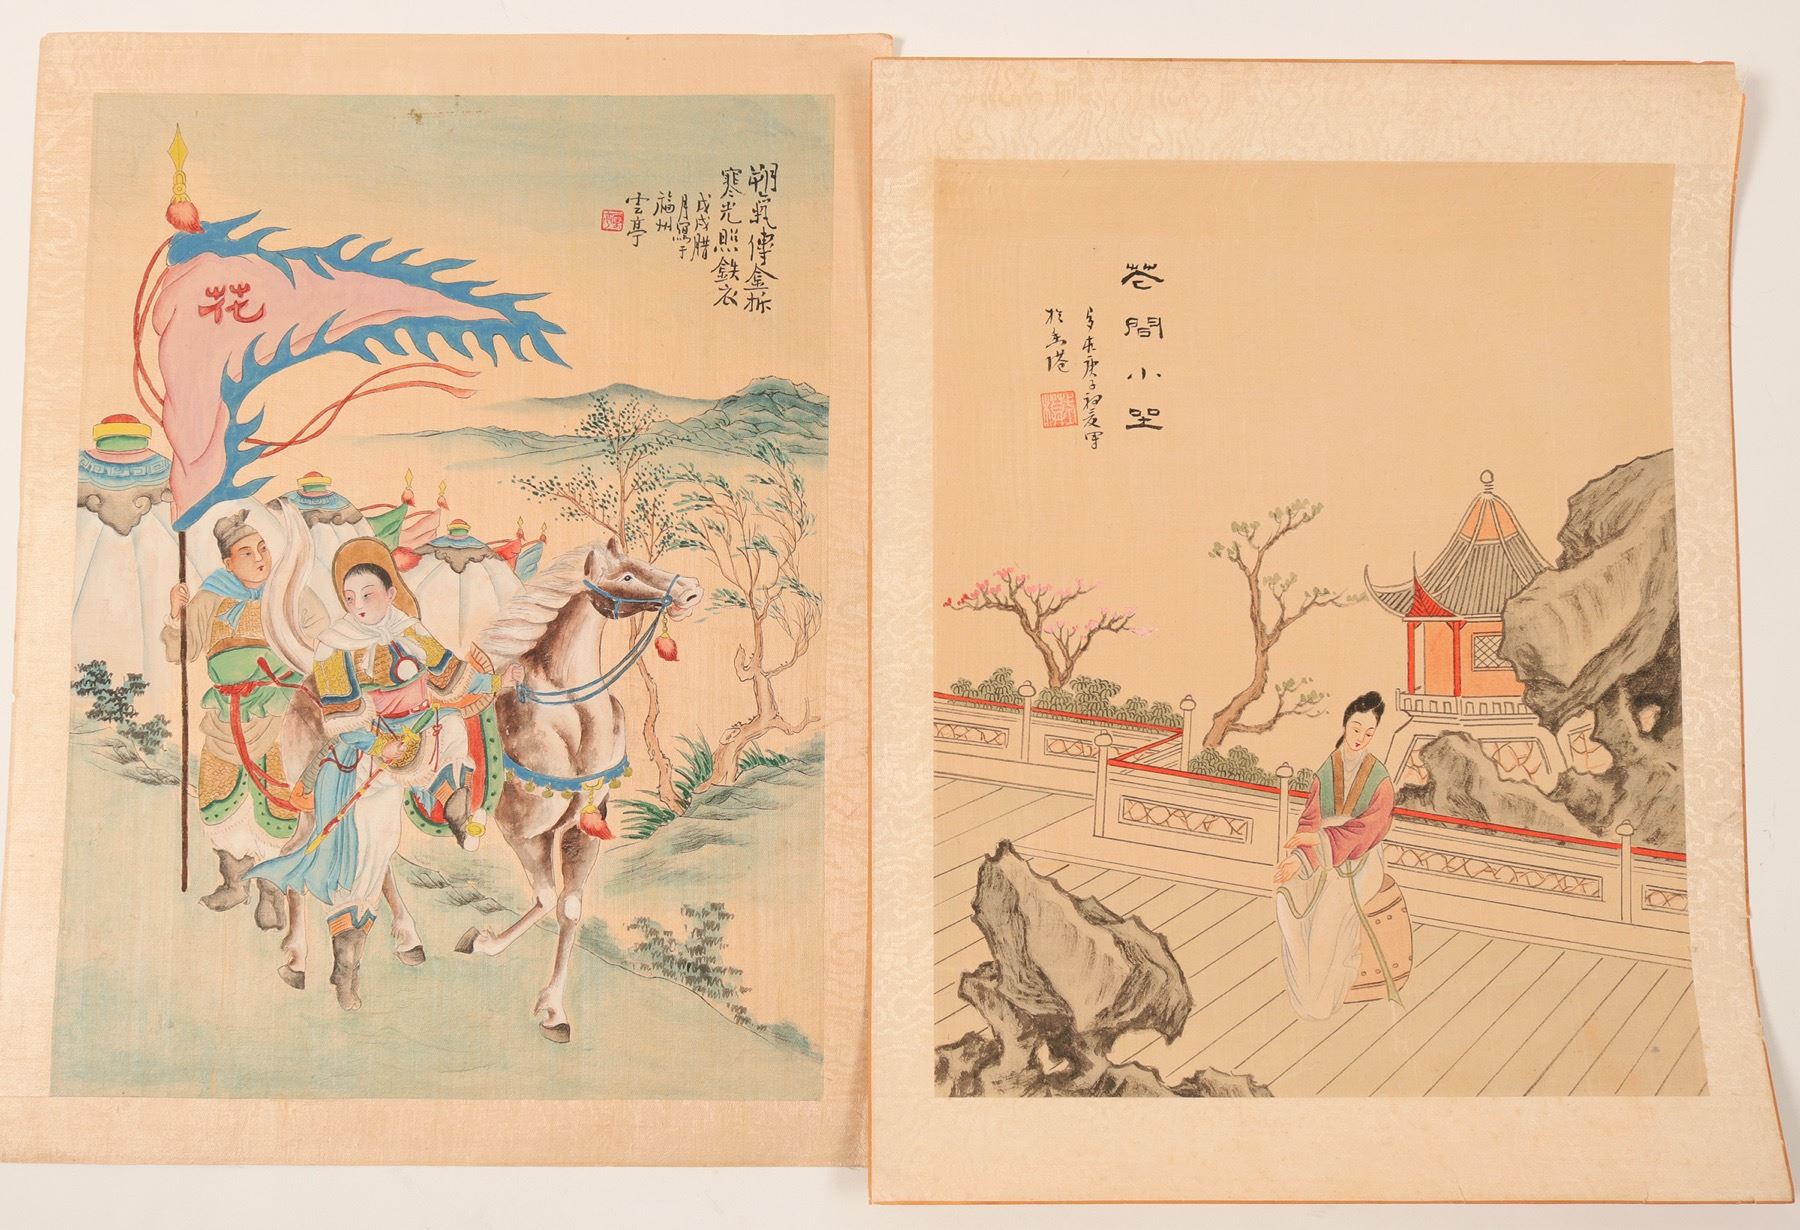 花
朔氣傳金柝
寒光照鉄衣
戊戌腊
月寫于
福州
雲亭
花間小坐
庚子初夏写
於香港